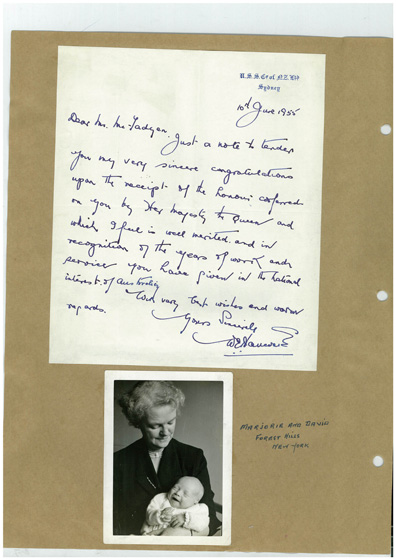 U.S.S. Co. of N.Z. Ltd
Sydney
10th June 1955
Dear Mr. McFadyen, Just a note to tender
you my very sincere congratulations
upon the receipt of the honour conferred
on you by Her Majesty the Queen and
which I feel is well merited and in
recognition of the years of work and
service you have given in the national
interest of Australia
With very best wishes and warm
regards.
Yours Sincerely
MARJORIE AND DAVID
FOREST HILLS
NEW YORK